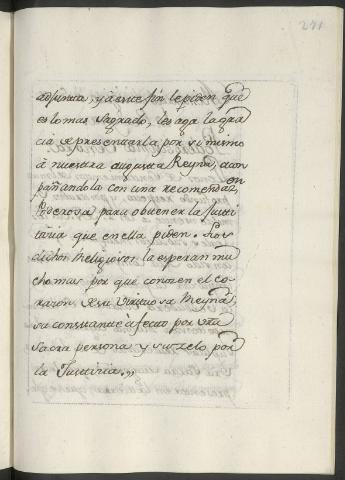 271
adjunta, y a este fin le piden que
es lo mas Sagrado, les aga la gra
cia de presentarla por si mimo
a nuestra augusta Reyna, acom
pañandola con una recomendaz.on
Poderosa para obtener la Justi
tiaria que en ella piden. Los
dichos Religiosos la esperan mu
cho mas por que conozen el co
razon de su virtuosa Reyna,
su constante afecto por vra
sacra persona y su zelo por
la Justicia.,,